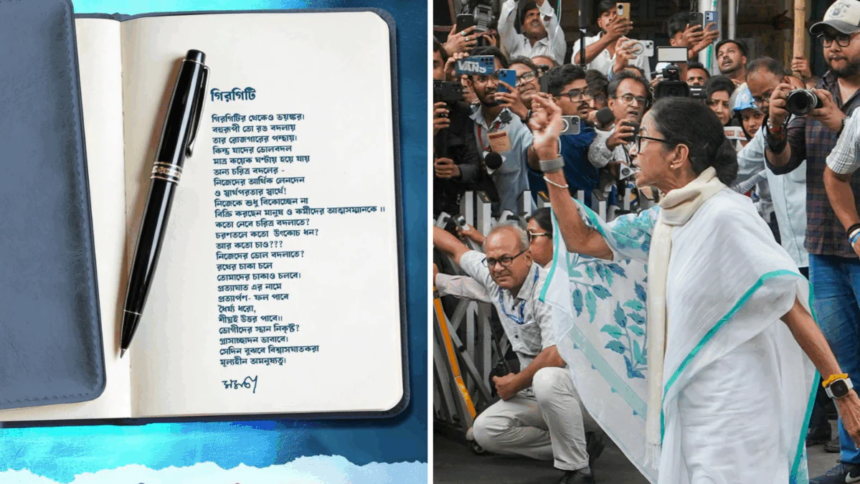 গিরগিটি
গিরগিটির থেকেও ভয়ঙ্কর।
বহুরূপী তো রঙ বদলায়
তার রোজগারের পন্থায়।
কিন্তু যাদের ভোলবদল
মাত্র কয়েক ঘণ্টায় হয়ে যায়
অন্য চরিত্র বদলের -
নিজেদের আর্থিক লেনদেন
ও স্বার্থপরতার স্বার্থে!
নিজেকে শুধু বিকোচ্ছেন না
বিক্রি করছেন মানুষ ও কর্মীদের আত্মসম্মানকে।।
কতো নেবে চরিত্র বদলাতে?
চরণতলে কতো উৎকোচ ধন?
আর কতো চাও???
নিজেদের ভোল বদলাতে?
রথের চাকা চলে
তোমাদের চাকাও চলবে।
প্রত্যাঘাত এর নামে
প্রত্যার্পণ- ফল পাবে
ধৈর্য্য ধরো,
শীঘ্রই উত্তর পাবে।।
ভোগীদের স্থান নিকৃষ্ট?
গ্রাসাচ্ছাদন ভাবাবে।
সেদিন বুঝবে বিশ্বাসঘাতকরা
মূল্যহীন অমনুষ্যত্ব।
মমতা
VANS